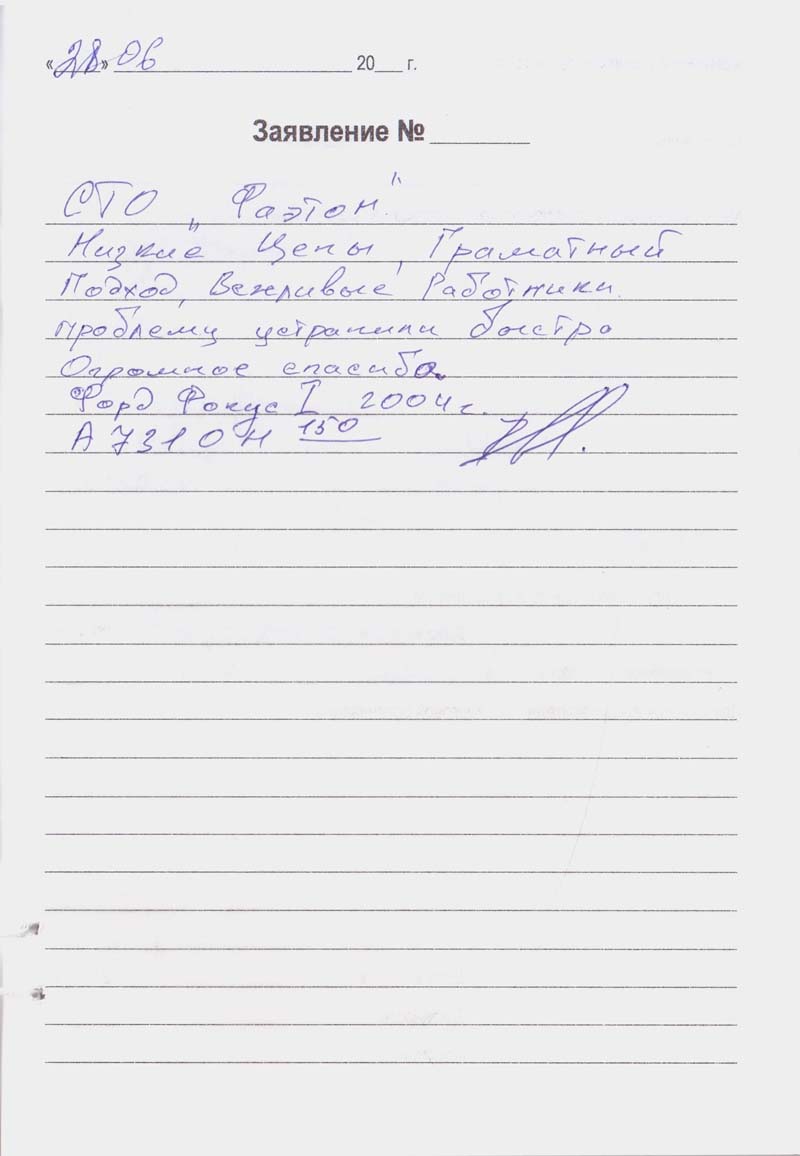 «28» 06 20___ г.
Заявление № ______
СТО „Фаэтон"
Низкие Цены, Граматный
Подход, Вежливые Работники.
проблему устранили быстро
Огромное спасибо.
Форд Фокус I 2004 г.
А 731 ОН 150